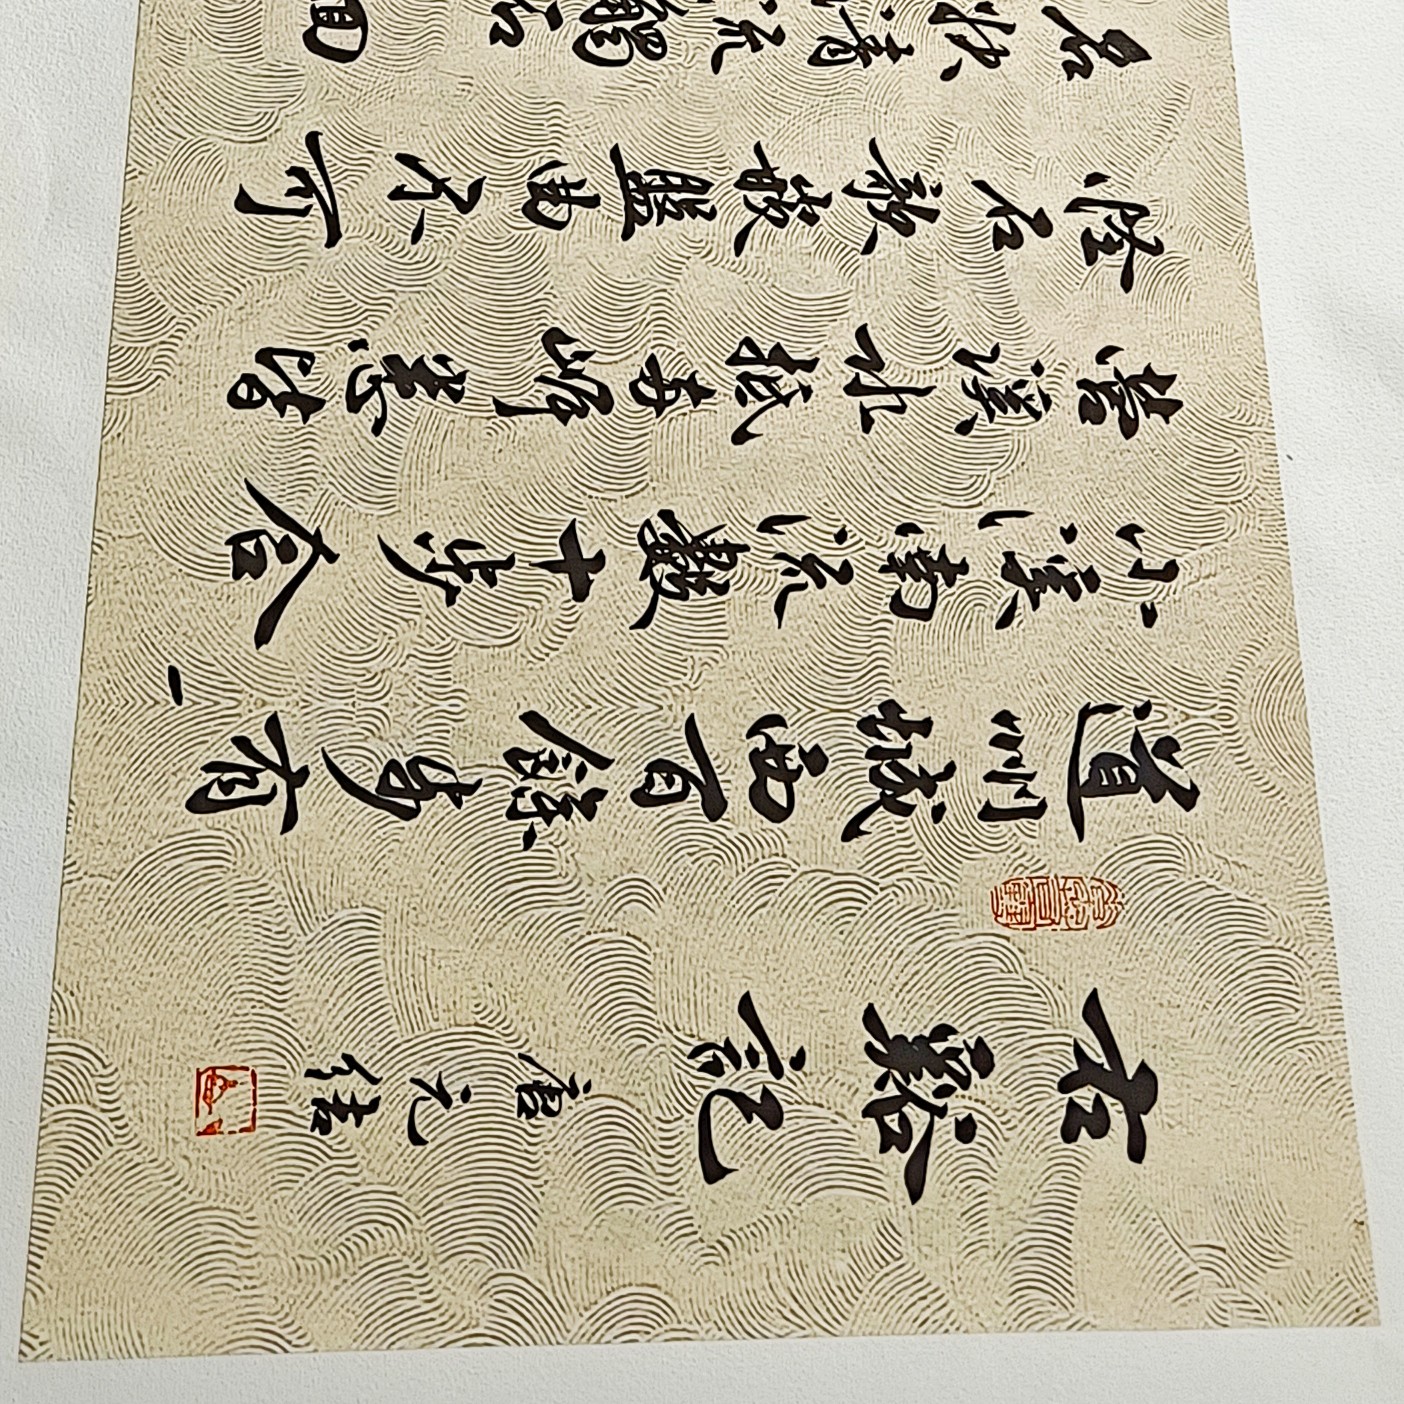 右谿記
唐元結
道州城西百餘步有一
小溪南流數十步合
營溪水抵兩岸悉皆
怪石欹嵌盤曲不可
名狀清流觸石洄